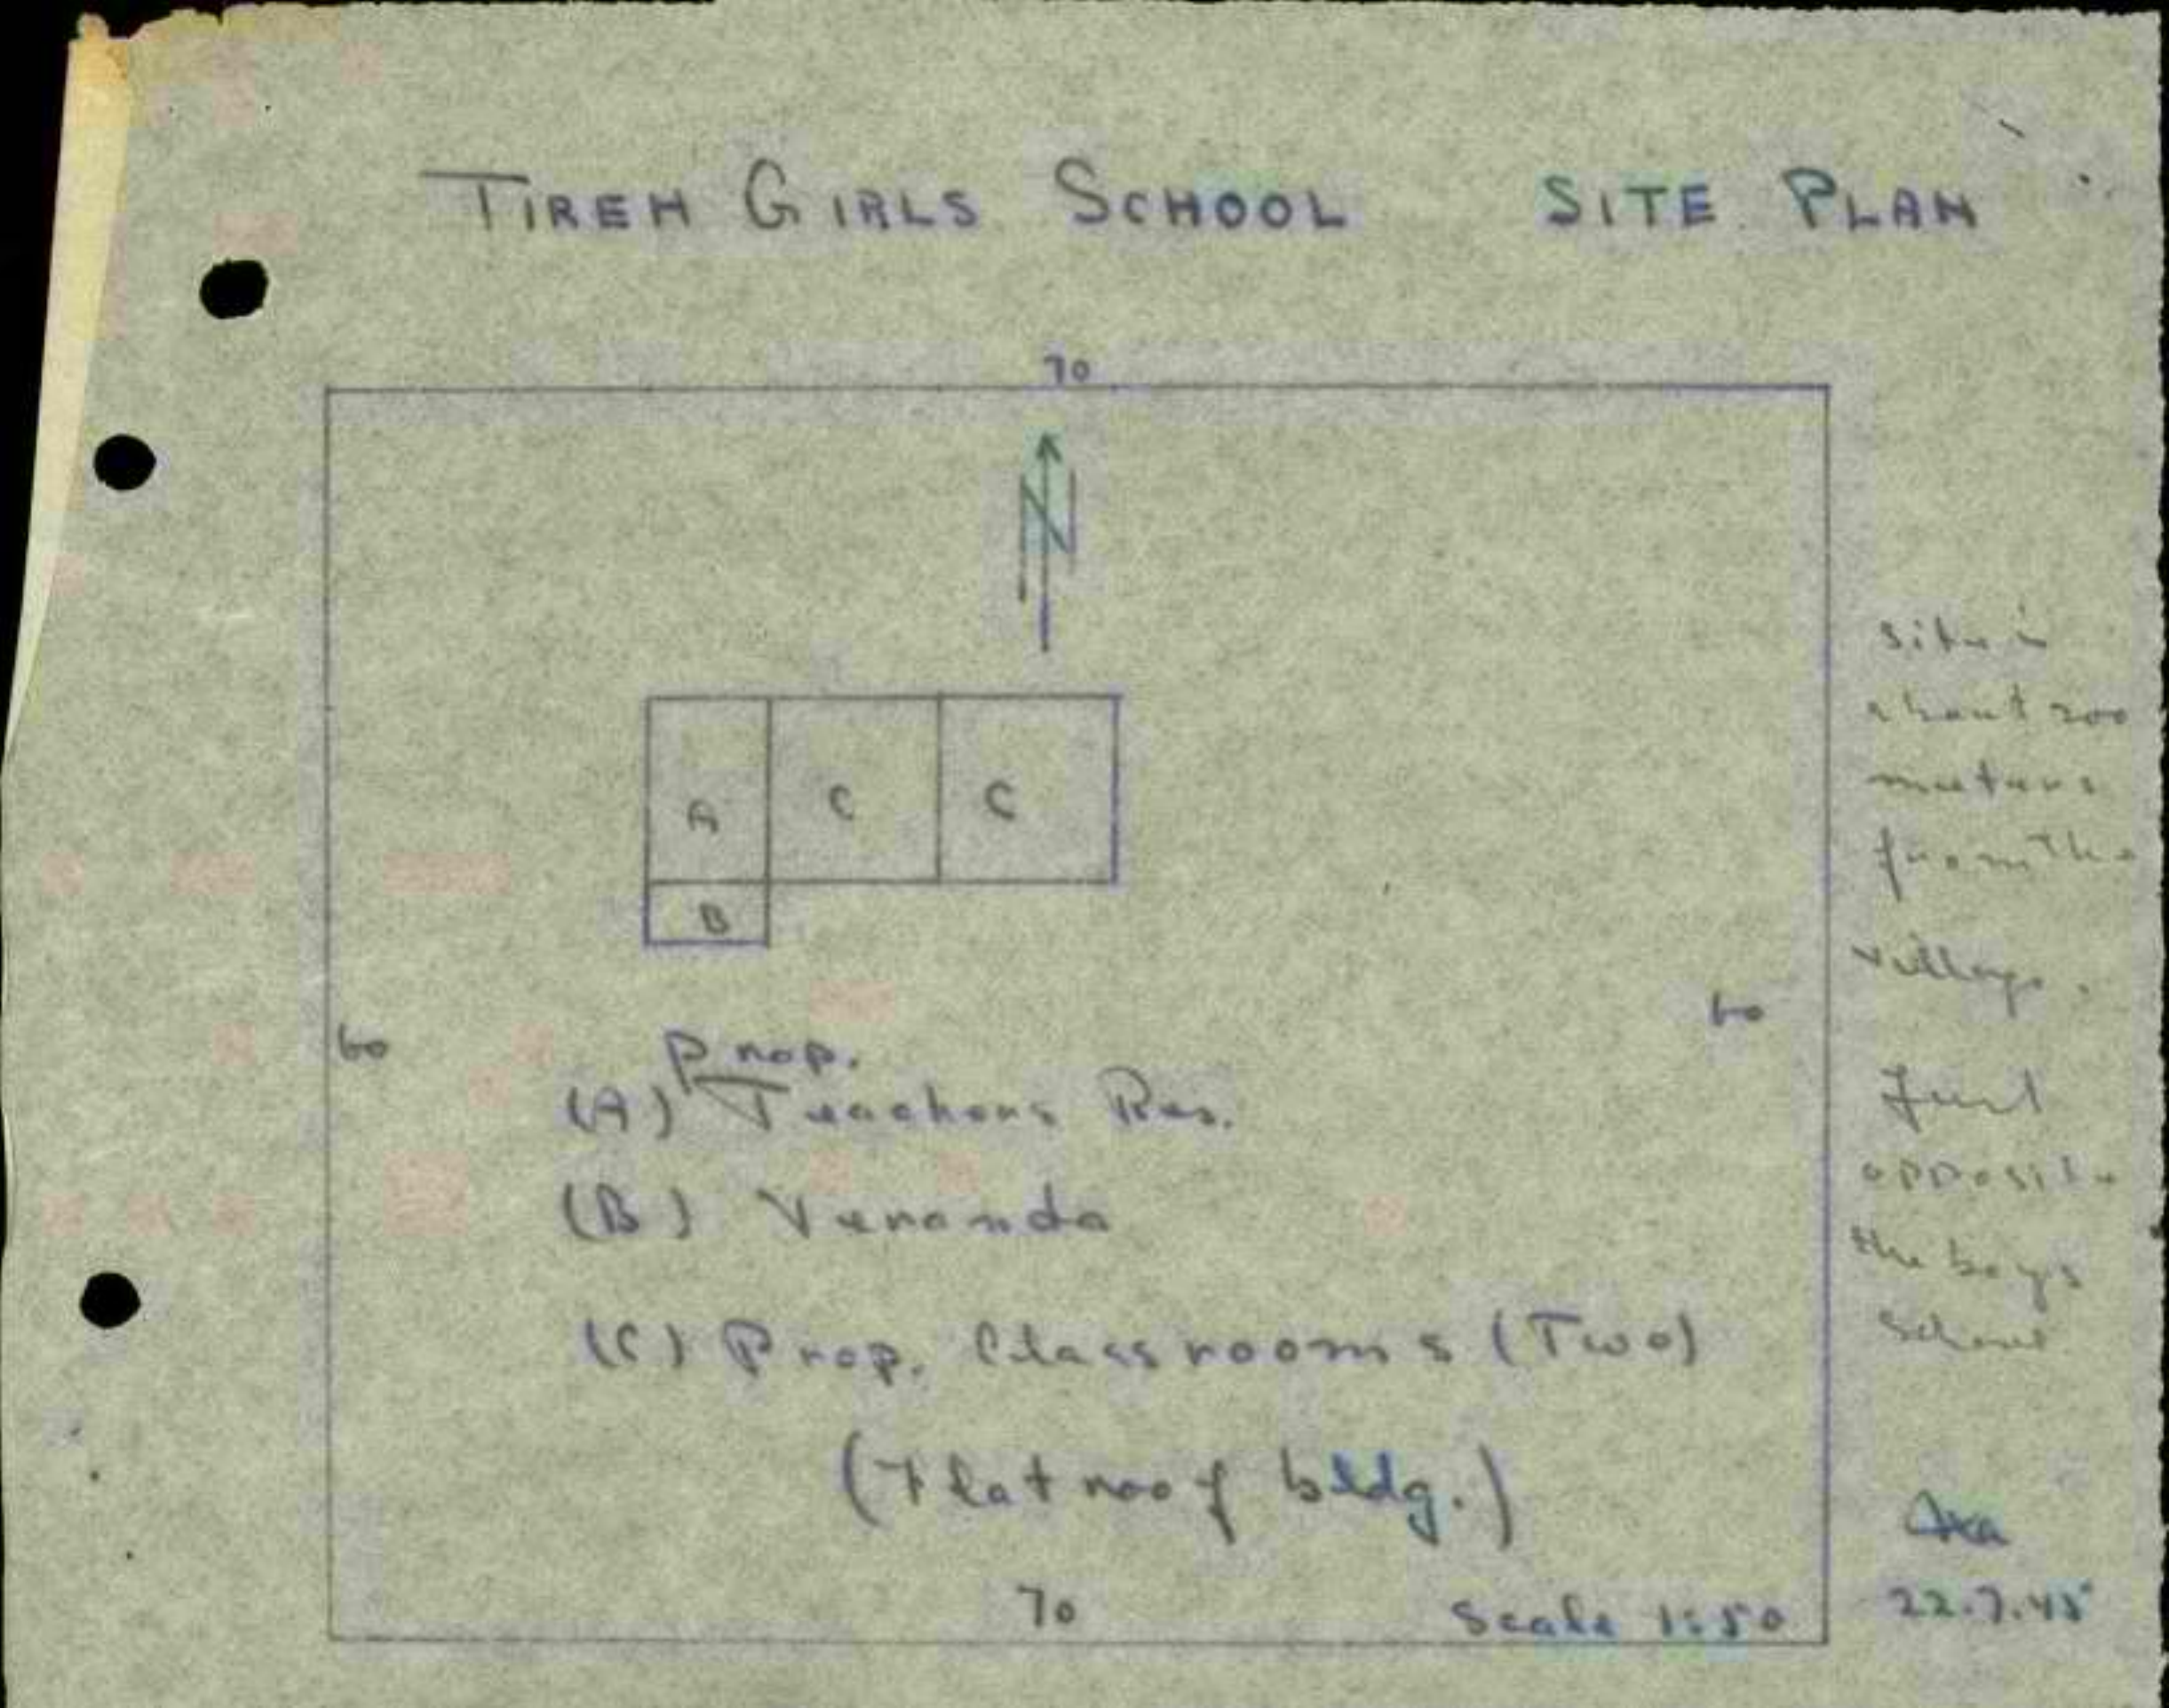 TIREH GIRLS SCHOOL SITE PLAN
70
N
A C C
B
60
60
Prop.
(A) Teachers Res.
(B) Veranda
(C) Prop. Classrooms (Two)
(Flat roof bldg.)
70
Scale 1:50
site is
about 200
meters
from the
village.
Just
opposite
the boys
School
22.7.45